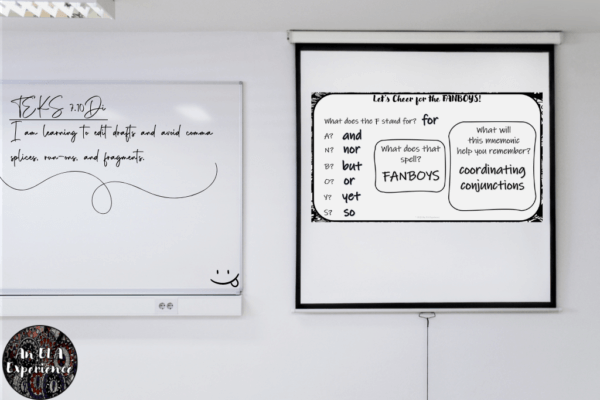 TEKS 7.10Di
I am learning to edit drafts and avoid comma
splices, run-ons, and fragments.
Let's Cheer for the FANBOYS!
What does the F stand for? for
A? and
N? nor
B? but
O? or
Y? yet
S? so
What does that
spell?
FANBOYS
What will
this mnemonic
help you remember?
coordinating
conjunctions
An ELA
Experience